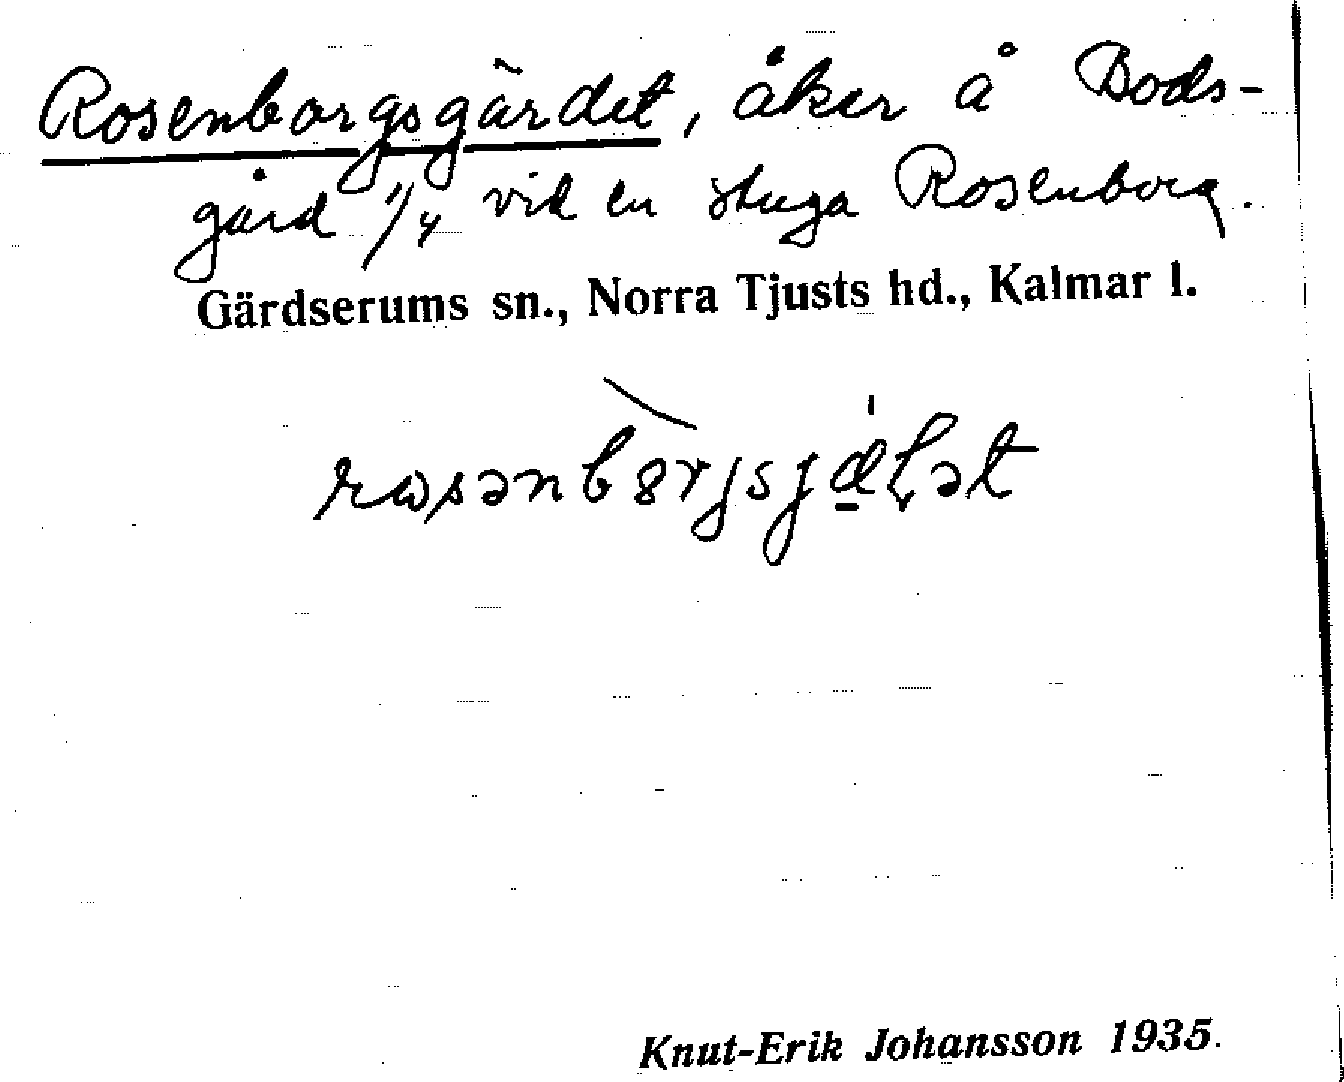 Rosenborgsgärdet, åker å Bods-
gård 1/4 vid en stuga Rosenborg.
Gärdserums sn., Norra Tjusts hd., Kalmar l.
Knut-Erik Johansson 1935.